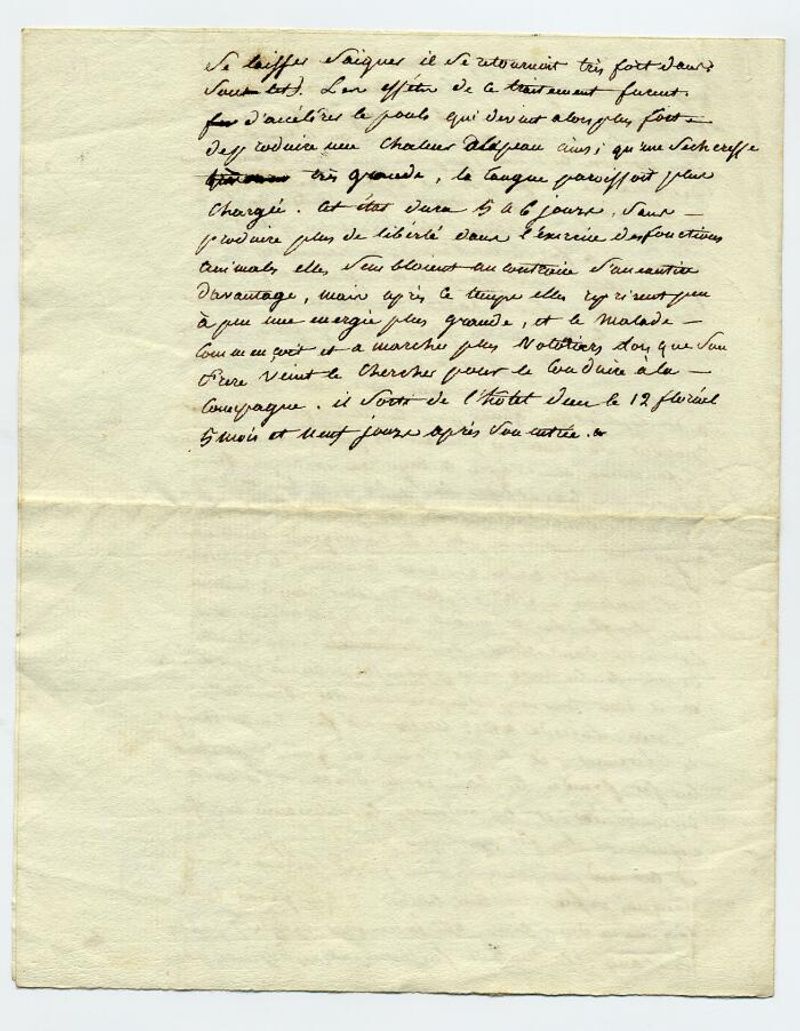 Se laisser Saigner il se retournoit très fort dans
Son lit). Les effets de ce traitement furent
d'accélérer le pouls qui devint alors plus fort
de produire une chaleur à la peau ainsi qu'une Secheresse
très grande, la langue paroissoit plus
Chargée. Cet état dura 5 à 6 jours, Sans —
produire plus de libérté dans l'éxercice des fonctions
animales elles Sembloient au contraire
davantage, mais après ce temps elles reprirent peu
à peu une energie plus grande, et le Malade —
Commençoit à marcher plus Volontiers Lorsque Son
Frere Veint le Chercher pour le Conduire à la —
Campagne. il Sortit de l'hôtel dieu le 12 floréal
5 mois et neuf jours après Son entrée.